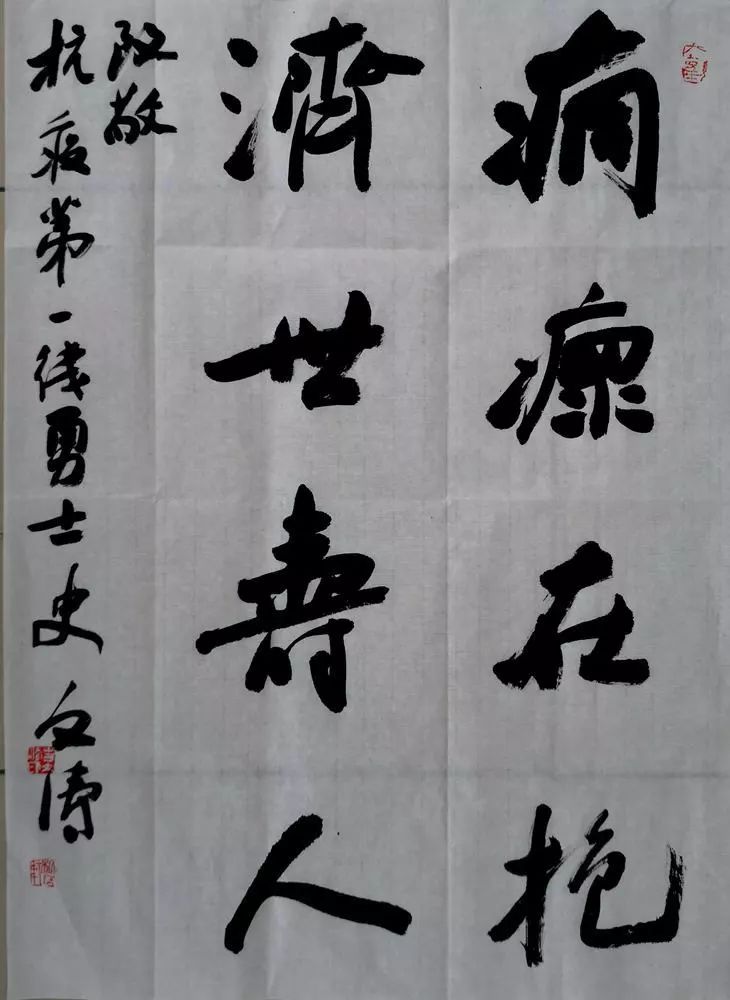 痌瘝在抱
濟世壽人
致敬
抗疫第一线勇士史文涛